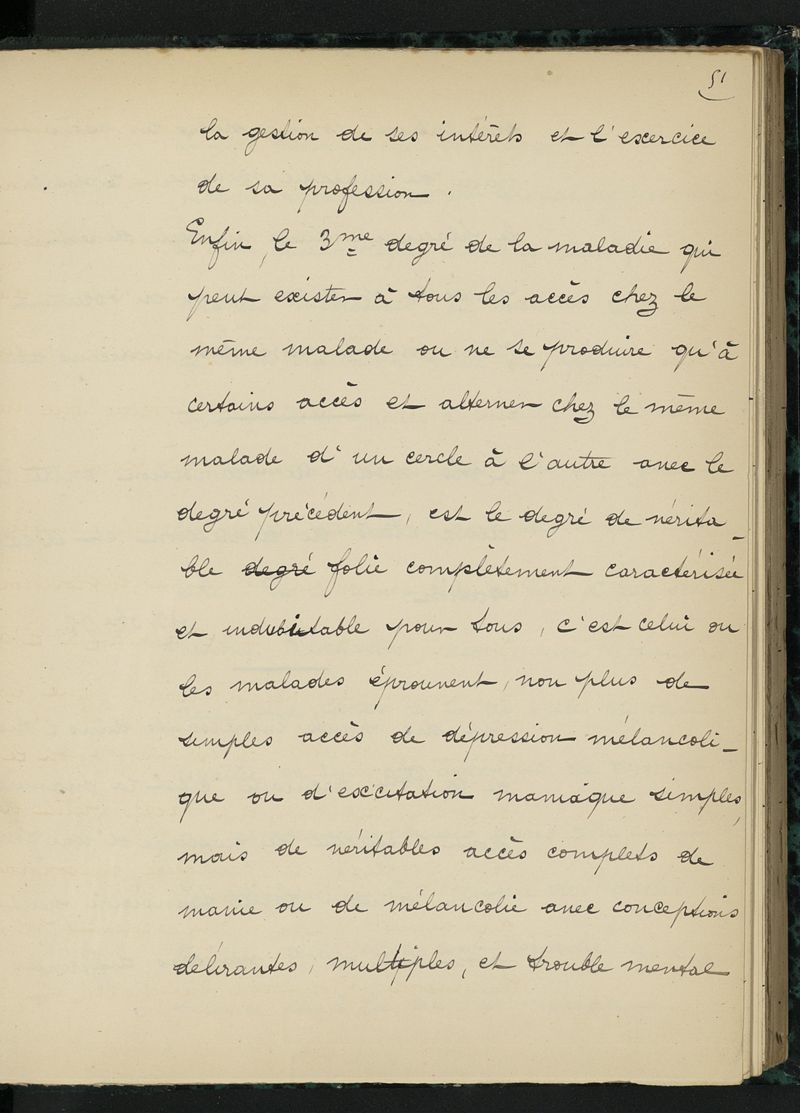 51
la gestion de ses intérêts et l'exercice
de sa profession.
Enfin, le 3me degré de la maladie qui
peut exister à tous les accès chez le
même malade ou ne se produire qu'à
certains accès et alterner chez le même
malade d'un cercle à l'autre avec le
degré précédent, est le degré de vérita-
ble degré folie complètement caractérisée
et indubitable pour tous, c'est celui ou
les malades éprouvent, non plus de
simples accès de dépression mélancoli-
que ou d'excitation maniaque simples,
mais de véritables accès complets de
manie ou de mélancolie avec conceptions
délirantes, multiples, et trouble mental